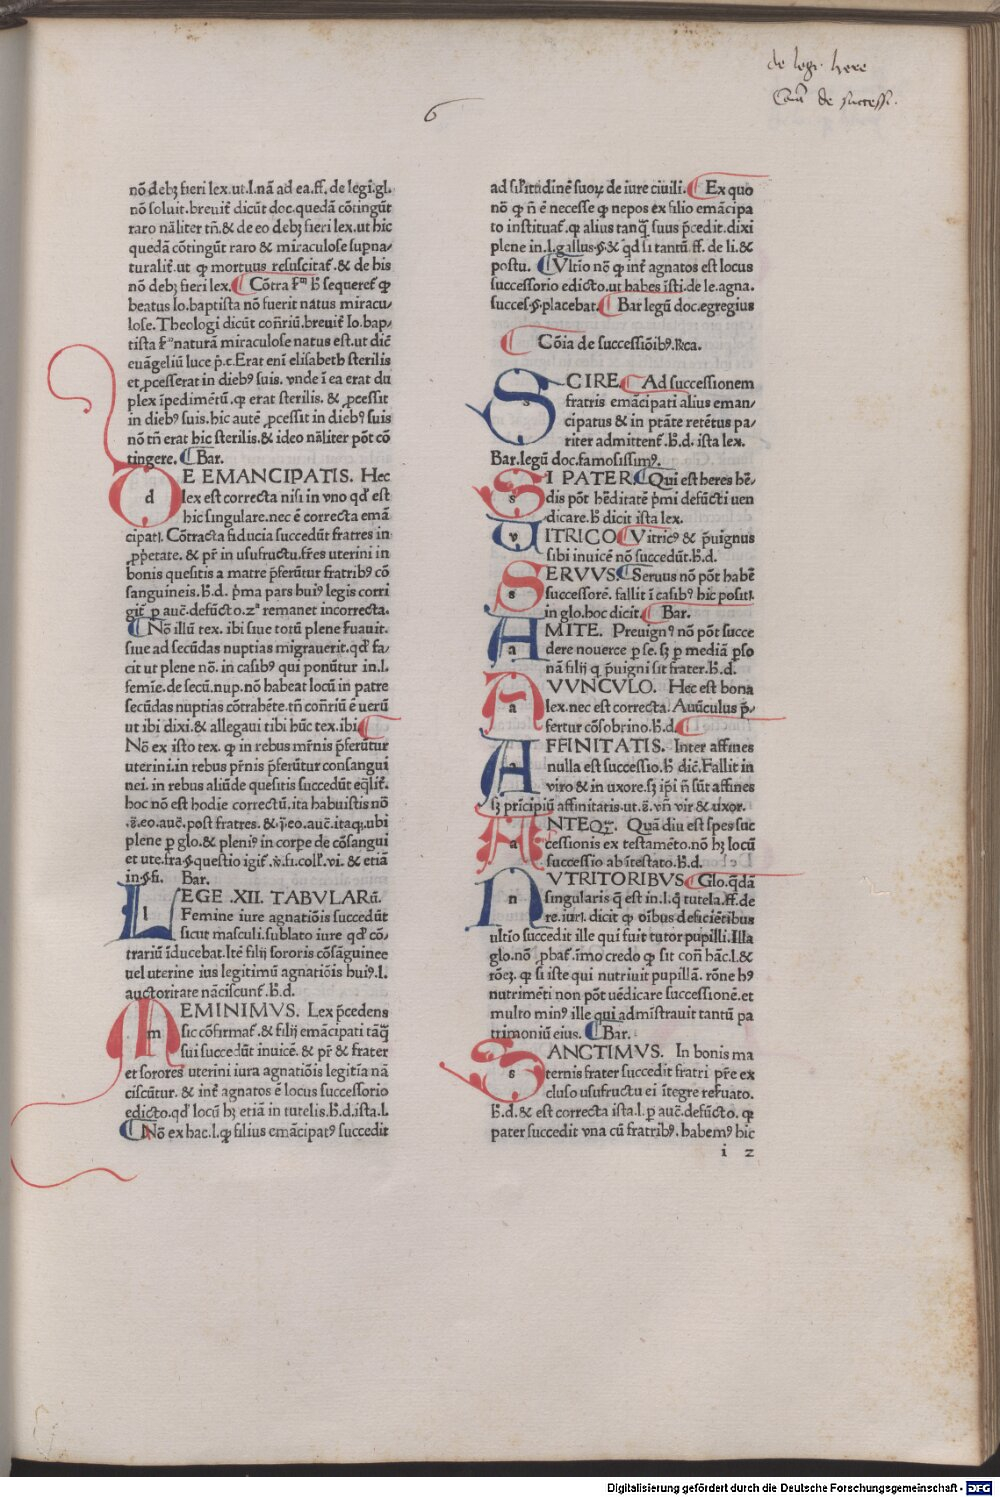 de legi. here
Cōia de successi.
6
nō debꝫ fieri lex.ut.l.nā ad ea.ff. de legi.gl.
nō soluit. breuit̄ dicūt doc. quedā cōtingūt
raro nāliter tn̄.& de eo debꝫ fieri lex.ut hic
quedā cōtingūt raro & miraculose supna/
turalit̄.ut ꝙ mortuus resuscitat̄.& de his
nō debꝫ fieri lex. Cōtra sm̄ h̄ sequeret̄ ꝙ
beatus Io.baptista nō fuerit natus miracu/
lose. Theologi dicūt cōn̄riū.breuit̄ Io.bap/
tista naturā miraculose natus est.ut dic̄
euāgeliū luce p̄.c.Erat eni elisabeth sterilis
et ꝓcesserat in diebꝰ suis. vnde ī ea erat du
plex īpedimētū.ꝙ erat sterilis. & ꝓcessit
in diebꝰ suis.hic autē ꝓcessit in diebꝰ suis
nō tn̄ erat hic sterilis.& ideo nāliter pōt cō
tingere. Bar.
d E EMANCIPATIS. Hec
lex est correcta nisi in vno qd̄ est
hic singulare.nec ē correcta emā
cipati. Cōtracta fiducia succedūt fratres in
ꝓp̄etate. & pr̄ in usufructu.fr̄es uterini in
bonis quesitis a matre p̄ferūtur fratribꝰ cō
sanguineis.h̄.d. p̄ma pars huiꝰ legis corri
git̄ ꝑ auc̄.defūcto.2ª remanet incorrecta.
Nō illū tex. ibi siue totū plene ẜuauit.
siue ad secūdas nuptias migrauerit.qd̄ fa/
cit ut plene nō. in casibꝰ qui ponūtur in.l.
femie.de secū.nup.nō habeat locū in patre
secūdas nuptias cōtrahēte.tn̄ cōn̄riū ē uerū
ut ibi dixi.& allegaui tibi hūc tex.ibi.
Nō ex isto tex. ꝙ in rebus mr̄nis p̄ferūtur
uterini.in rebus pr̄nis p̄ferūtur consangui
nei. in rebus aliūde quesitis succedūt eq̄lit̄.
hoc nō est hodie correctū.ita habuistis nō
.s̄.eo.auc̄.post fratres. & .j̄.eo.auc̄.itaqꝫ.ubi
plene ꝑ glo.& pleniꝰ in corpe de cōsangui
et ute.fra.§.questio igit̄. v̄.fi.coll̄.vi. & etiā
in.§.fi. Bar.
l EGE .XII. TABVLARū.
Femine iure agnatiōis succedūt
sicut masculi.sublato iure qd̄ cō/
trariū īducebat.Itē filij sororis cōsāguinee
uel uterine ius legitimū agnatiōis huiꝰ.l.
auctoritate nāciscunt̄.h̄.d.
m EMINIMVS. Lex p̄cedens
sic cōfirmat̄.& filij emācipati tāq̄
sui succedūt inuicē. & pr̄ & frater
et sorores uterini iura agnatiōis legitīa nā
ciscūtur. & int̄ agnatos ē locus successorio
edicto.qd̄ locū hꝫ etiā in tutelis.h̄.d.ista.l.
Nō ex hac.l.ꝙ filius emācipatꝰ succedit
ad sil̄itudinē suoꝝ de iure ciuili. Ex quo
nō ꝙ n̄ ē necesse ꝙ nepos ex filio emācipa
to instituat̄.ꝙ alius tanq̄ suus p̄cedit.dixi
plene in.l.gallus.§.& qd̄ si tantū.ff. de li.&
postu. Vltio nō ꝙ int̄ agnatos est locus
successorio edicto.ut habes īsti.de le.agna.
succes.§.placebat. Bar legū doc.egregius
Cōia de successiōibꝰ. Rca.
s CIRE. Ad successionem
fratris emācipati alius eman/
cipatus & in ptāte retētus pa/
riter admittent̄.h̄.d. ista lex.
Bar.legū doc.famosissimꝰ.
s I PATER. Qui est heres hē/
dis pōt hēditatē p̄mi defūcti uen
dicare.h̄ dicit ista lex.
v ITRICO. Vitricꝰ & p̄uignus
sibi inuicē nō succedūt.h̄.d.
s ERVVS. Seruus nō pōt habē
successorē. fallit ī casibꝰ hic positi.
in glo.hoc dicit. Bar.
a MITE. Preuignꝰ nō pōt succe
dere nouerce ꝑ se. sꝫ ꝑ mediā ꝑso
nā filij q̄ p̄uigni sit frater.h̄.d.
a VVNCVLO. Hec est bona
lex.nec est correcta. Auūculus p̄/
fertur cōsobrino.h̄.d.
a FFINITATIS. Inter affines
nulla est successio.h̄ dic̄.Fallit in
viro & in uxore.sꝫ ip̄i n̄ sūt affines
sꝫ prīcipiū affinitatis.ut.s̄. vn̄ vir & uxor.
a NTEQꝫ. Quā diu est spes suc
cessionis ex testamēto.nō hꝫ locū
successio ab ītestato.h̄.d.
n VTRITORIBVS. Glo.q̄dā
singularis q̄ est in.l.q̄ tutela.ff.de
re.iuri. dicit ꝙ oībus deficiētibus
ultio succedit ille qui fuit tutor pupilli.Illa
glo.nō ꝓbat̄.imo credo ꝙ sit con̄ hāc.l.&
rōeꝫ. ꝙ si iste qui nutriuit pupillā. rōne hꝰ
nutrimēti non pōt uēdicare successionē.et
multo minꝰ ille qui admīstrauit tantū pa
trimoniū eius. Bar.
s ANCTIMVS. In bonis ma
ternis frater succedit fratri pr̄e ex
cluso usufructu ei ītegre reẜuato.
h̄.d.& est correcta ista.l.ꝑ auc̄.defūcto. ꝙ
pater succedit vna cū fratribꝰ. habemꝰ hic
i 2
Digitalisierung gefördert durch die Deutsche Forschungsgemeinschaft - DFG